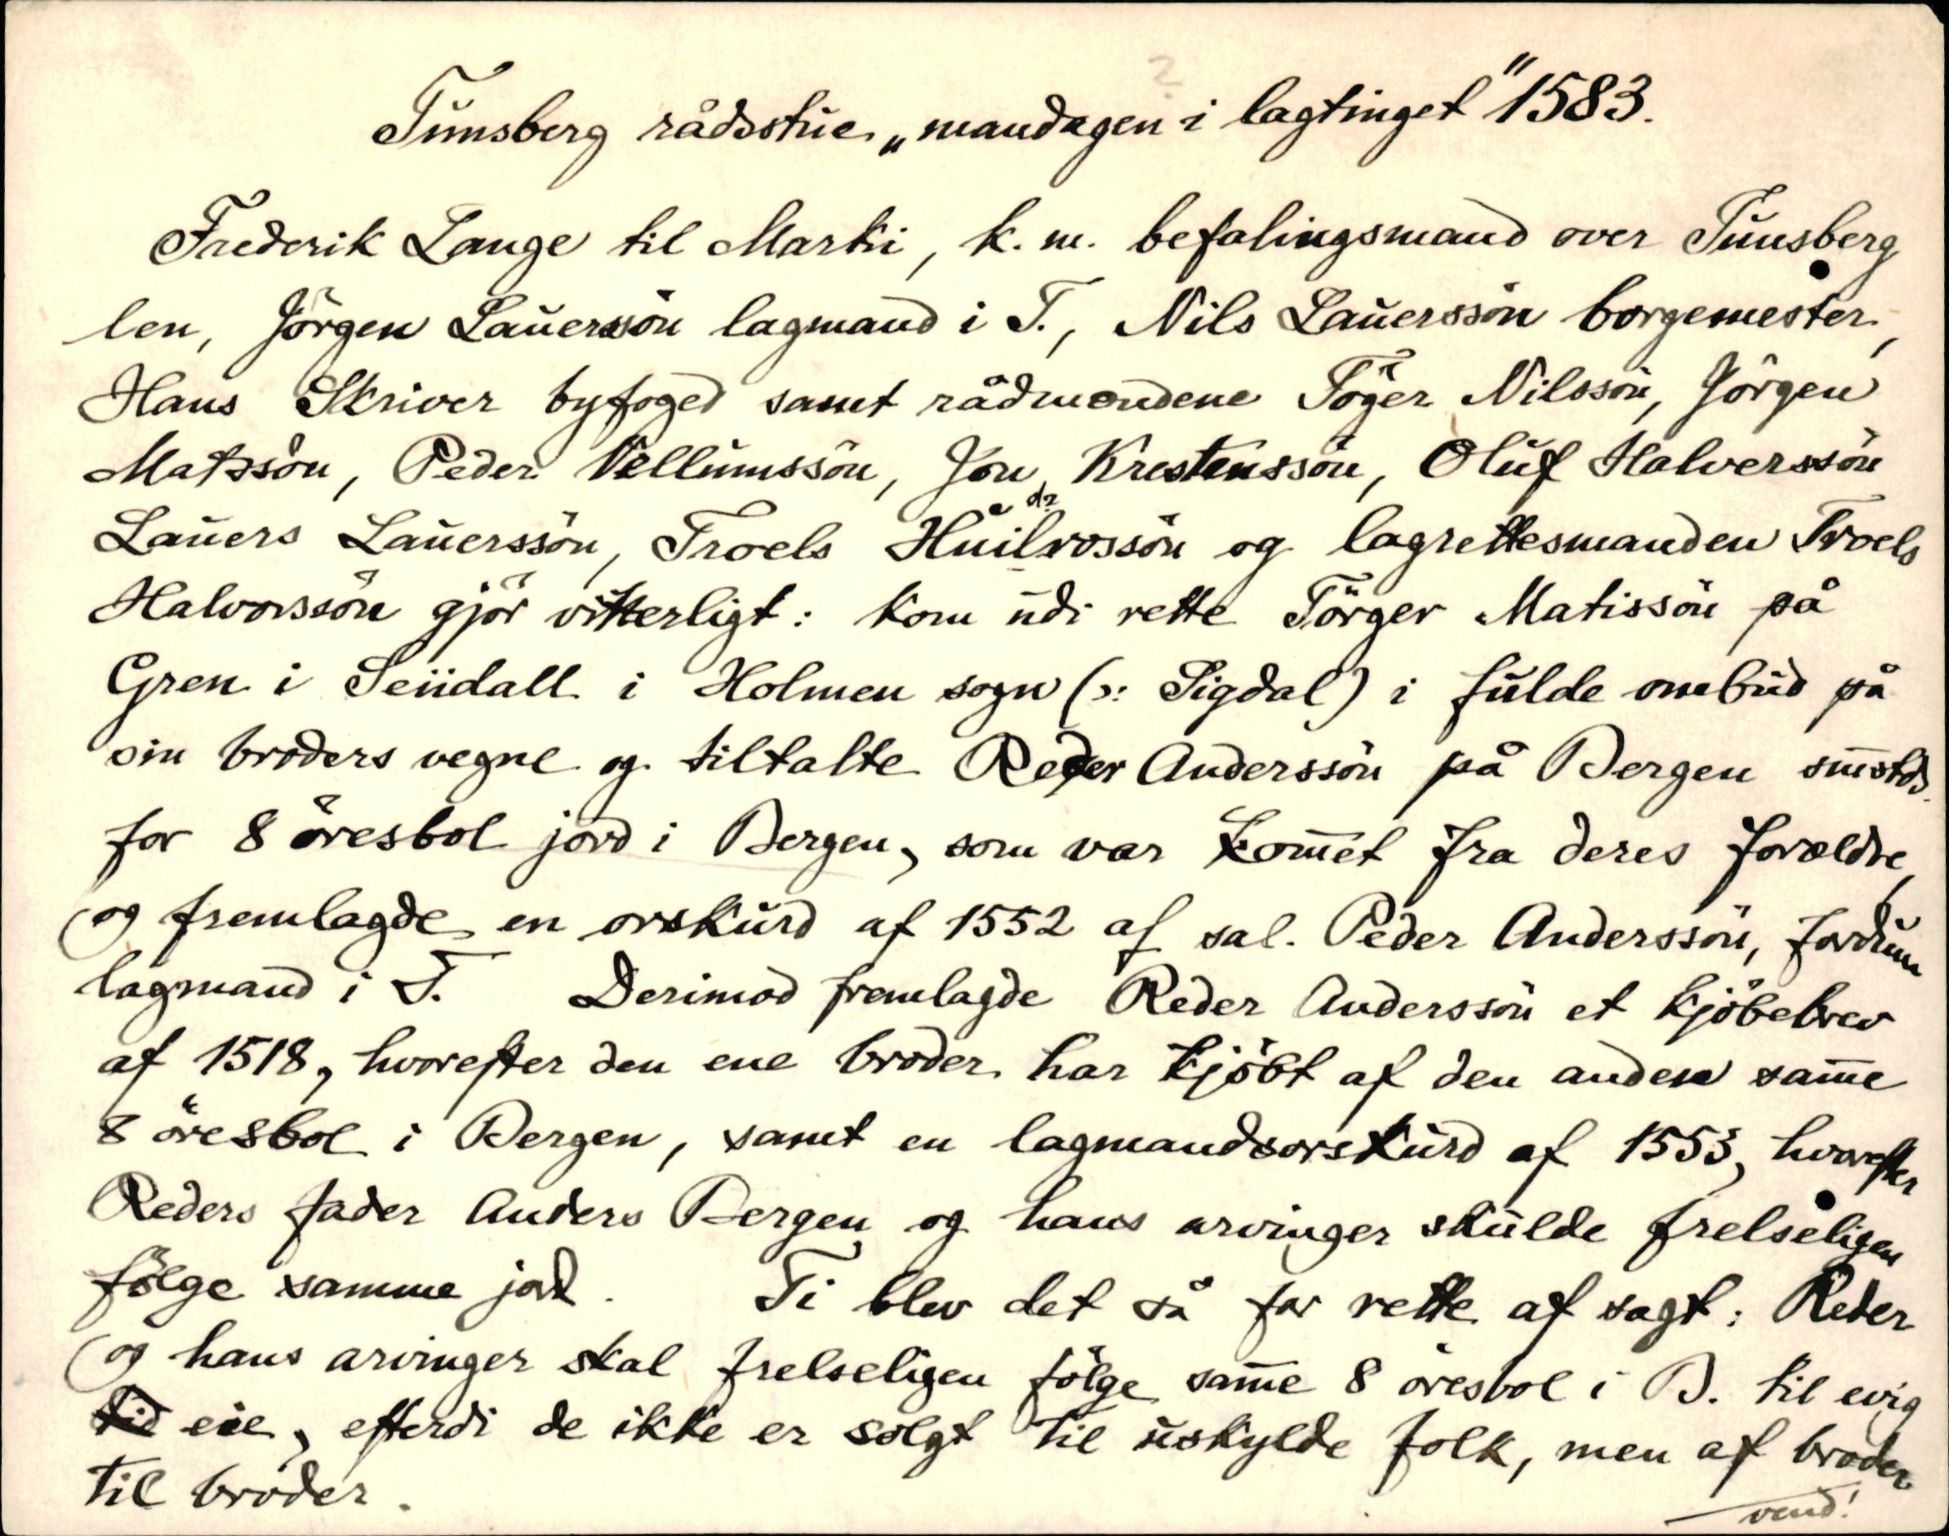 Tunsberg rådsstue „mandagen i lagtinget" 1583.
Frederik Lange til Marki, k. m. befalingsmand over Tunsberg
len, Jörgen Lauerssön lagmand i T., Nils Lauerssön borgemester,
Hans Skriver byfoged samt rådmendene Töger Nilssön, Jörgen
Matssön, Peder Vellumssön, Jon Krestenssön, Oluf Halverssön
Lauers Lauerssön, Troels og lagrettesmanden Troels
Halvorssön gjör vitterligt: kom udi rette Törger Matissön på
Gren i Seiidall i Holmen sogn (ɔ: Sigdal) i fulde ombud på
sin broders vegne og tiltalte Reder Anderssön på Bergen sm̅stds.
for 8 öresbol jord i Bergen, som var kom̅et fra deres forældre,
og fremlagde en orskurd af 1552 af sal. Peder Anderssön, fordum
lagmand i T. Derimod fremlagde Reder Anderssön et kjöbebrev
af 1518, hvorefter den ene broder har kjöbt af den anden sam̅e
8 öresbol i Bergen, samt en lagmandsorskurd af 1553, hvorefter
Reders fader Anders Bergen og hans arvinger skulde frelseligen
fölge samme jord. Ti blev det så for rette af sagt: Reder
og hans arvinger skal frelseligen fölge sam̅e 8 öresbol i B. til evig
tid eie, efterdi de ikke er solgt til uskylde folk, men af broder
til broder.
vend!